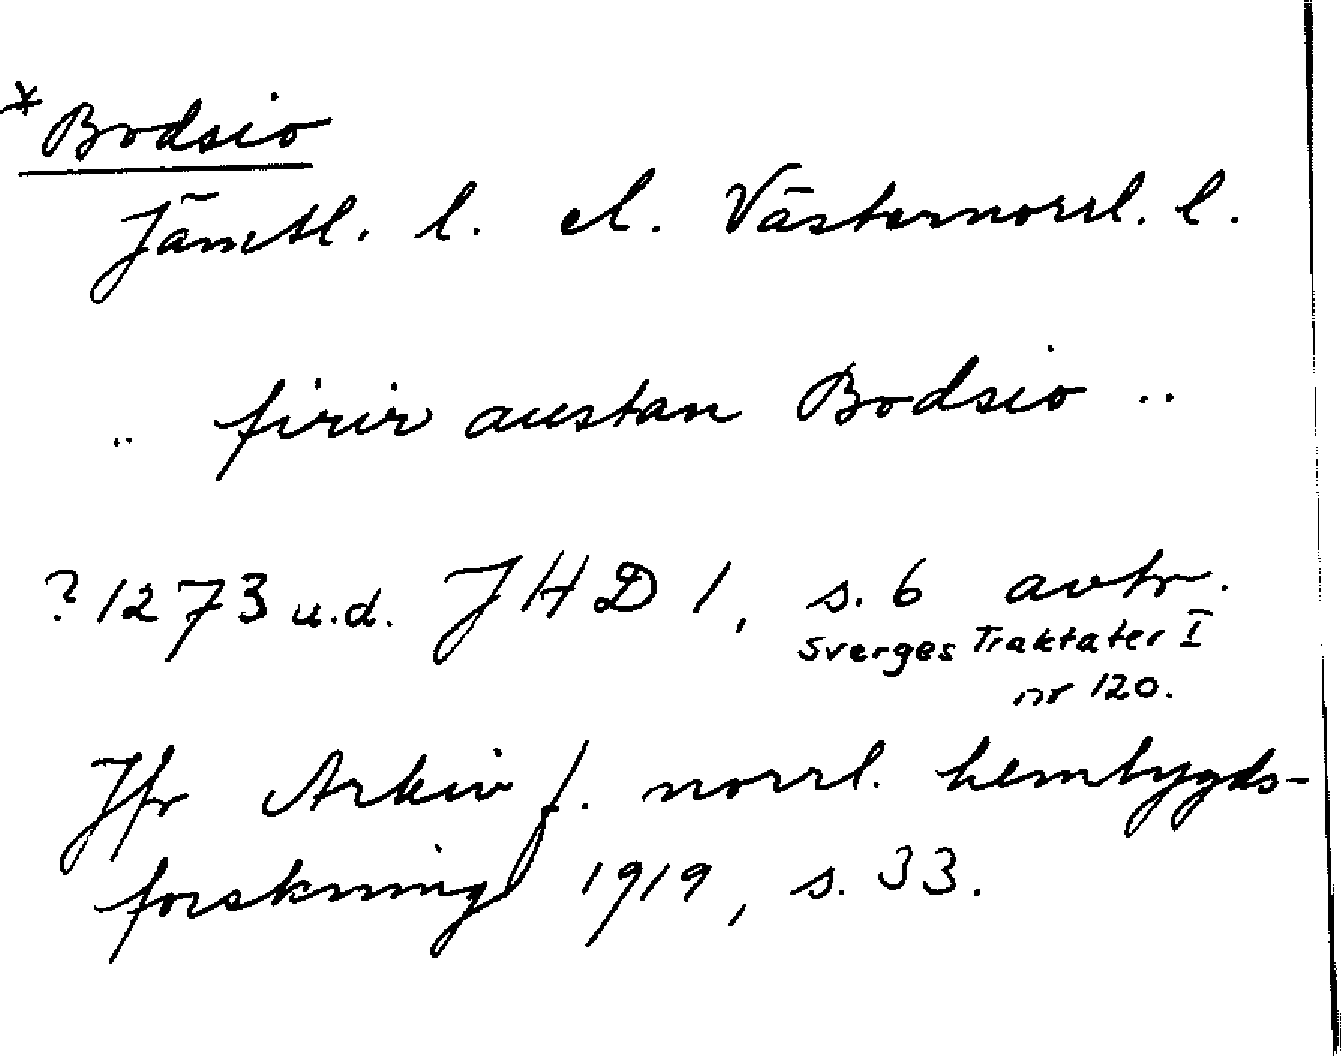 *Bodsio
Jämtl. l. el. Västernorrl. l.
.. firir austan Bodsio ..
? 1273 u.d. JHD 1, s. 6 avtr.
Sverges Traktater I
nr 120.
Jfr Arkiv f. norrl. hembygds-
forskning 1919, s. 33.